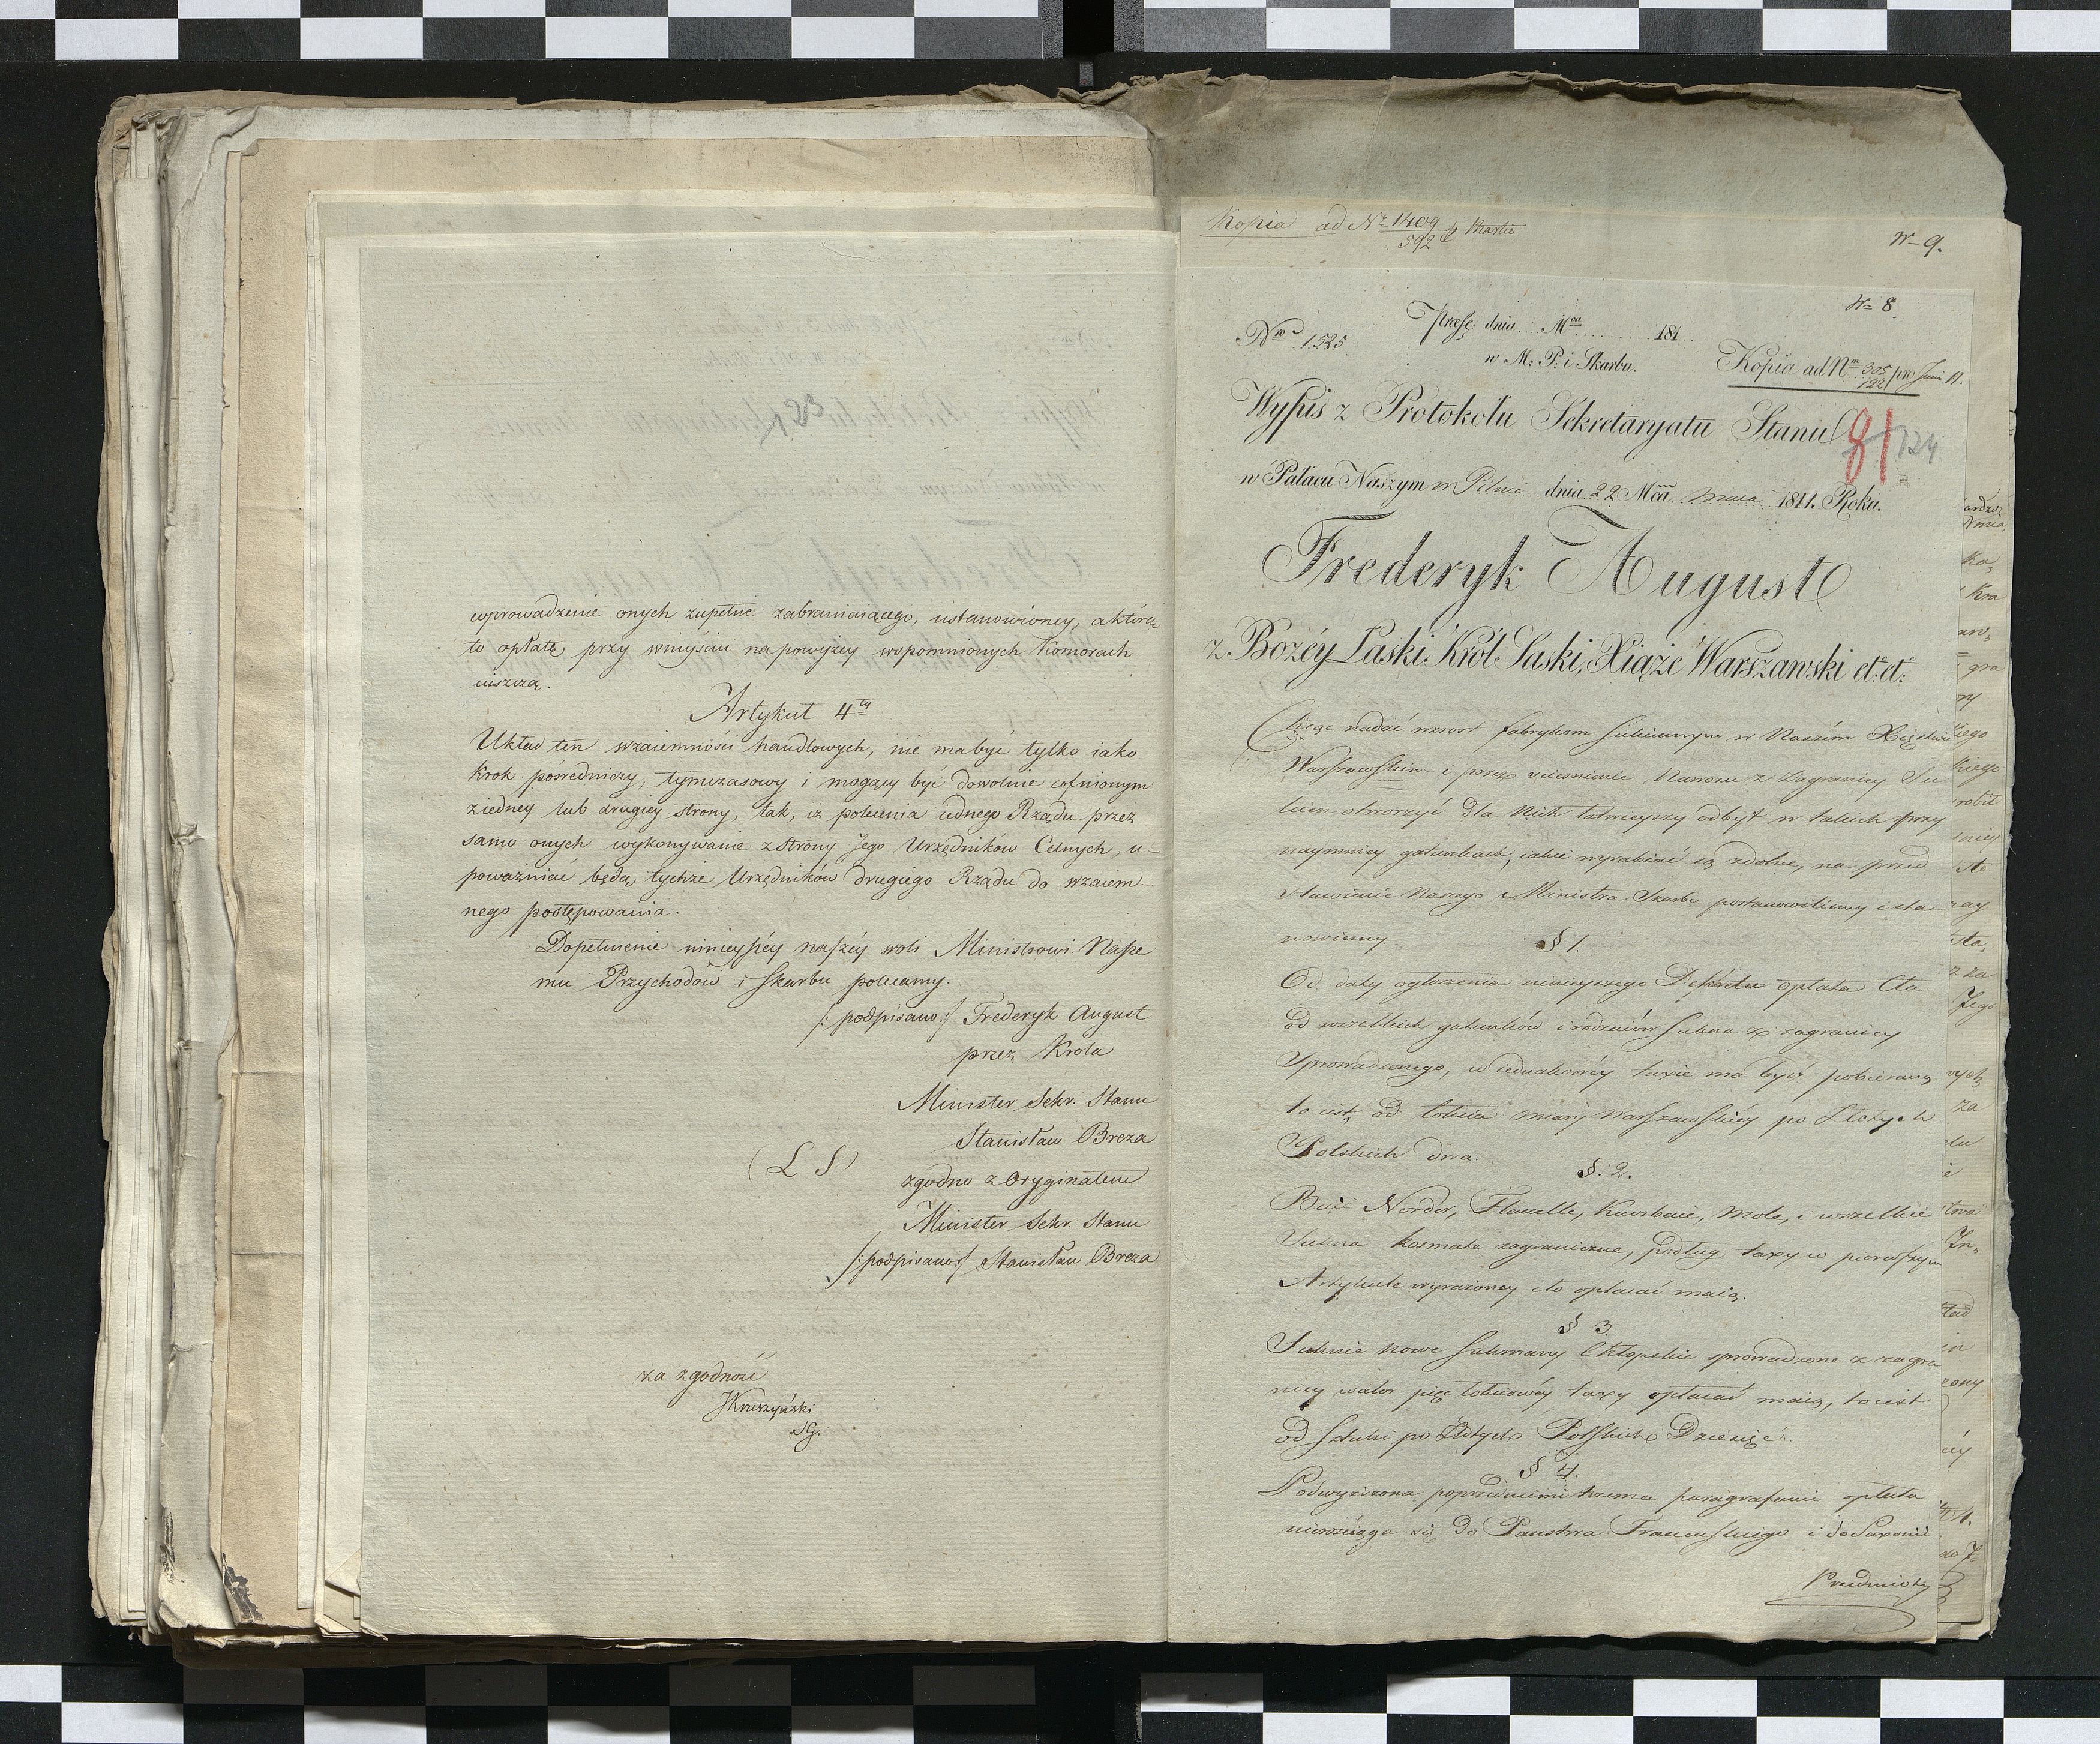 wprowadzenie onych zupełnie zabraniaiącego, ustanowioney, a którą
to opłatę przy wniyściu na powyżey wspomnionych Komorach
uiszczą.
Artykuł 4ty
Układ ten wzaiemności handlowych, nie ma być tylko iako
Krok pośredniczy, tymczasowy i mogący być dowolnie cofnionym
z iedney lub drugiey strony, tak, iż polecenia iednego Rządu przez
samo onych wykonywanie z strony Jego Urzędników Celnych, u-
poważniać będą tychże Urzędników drugiego Rządu do wzaiem-
nego postępowania.
Dopełnienie ninieyszéy naszéy woli Ministrowi Nasze
mu Przychodów i Skarbu polecamy.
/: podpisano :/ Frederyk August
przez Króla
Minister Sekr. Stanu
Stanisław Breza
(L S)
zgodno z Oryginałem
Minister Sekr. Stanu
/: podpisano :/ Stanisław Breza
za zgodność
JKruszyński
SG.
123
Kopia ad Nr 1409/592 Martii
N 9.
N 8.
Nro 1525
Præs: dnia Mca 181
w M: P: i Skarbu.
Kopia ad Num 305/122 pro Juni 11.
Wypis z Protokołu Sekretaryatu Stanu
81
124
w Pałacu Naszym w Pilnic dnia 22 Mca Maia 1811. Roku.
Frederyk August
z Bożéy Łaski Król Saski, Xiąże Warszawski etc: etc:
Chcąc nadać wzrost fabrykom sukiennym w Naszém Xięstwie
Warszawskim i przez ścieśnienie Nawozu z zagranicy Su
kien otworzyć dla Nich łatwieyszy odbyt w takich przy
naymniey gatunkach, iakie wyrabiać są zdolne, na przed
stawienie Naszego Ministra Skarbu postanowiliśmy i sta
nowiemy.
§ 1.
Od daty ogłoszenia ninieyszego Dekretu opłata Cła
od wszelkich gatunków i rodzaiów Sukna z zagranicy
Sprowadzonego, w iednakowéy taxie ma być pobieraną
to iest, od łokcia miary Warszawskiey po Złotych
Polskich dwa.
§. 2.
Baie Norder, Flanelle, Kuczbaie, Mole, i wszelkie
Sukna kosmate zagraniczne, podług taxy w pierwszym
Artykule wyrażoney cło opłacać maią.
§ 3.
Suknie nowe Sukmany Chłopskie sprowadzone z zagra
nicy walor pięć łokciowéy taxy opłacać maią, to iest
od sztuki po Złotych Polskich Dziesięć.
§ 4.
Podwyższona poprzedniemi trzema paragrafami opłata
nieściąga się do Państwa Francuskiego i do Saxonii
Przedmioty